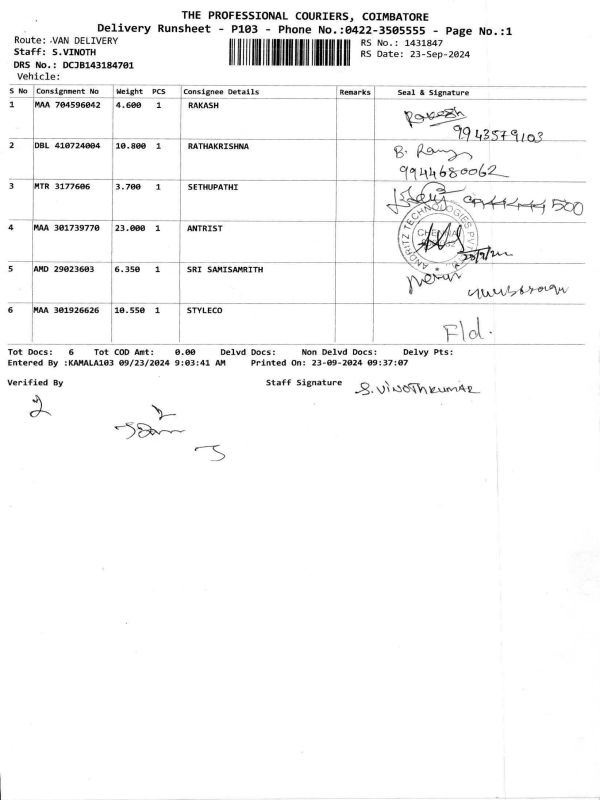 THE PROFESSIONAL COURIERS, COIMBATORE
Delivery Runsheet - P103 - Phone No.:0422-3505555 - Page No.:1
Route: VAN DELIVERY
RS No.: 1431847
Staff: S.VINOTH
RS Date: 23-Sep-2024
DRS No.: DCJB143184701
Vehicle:
S No Consignment No Weight PCS Consignee Details Remarks Seal & Signature
1 MAA 704596042 4.600 1 RAKASH Rakesh
9943579103
2 DBL 410724004 10.800 1 RATHAKRISHNA B. Ramy
9944680062
3 MTR 3177606 3.700 1 SETHUPATHI 500
4 MAA 301739770 23.000 1 ANTRIST ANDRITZ TECHNOLOGIES PVT
5 AMD 29023603 6.350 1 SRI SAMISAMRITH
6 MAA 301926626 10.550 1 STYLECO Fld.
Tot Docs: 6 Tot COD Amt: 0.00 Delvd Docs: Non Delvd Docs: Delvy Pts:
Entered By :KAMALA103 09/23/2024 9:03:41 AM Printed On: 23-09-2024 09:37:07
Verified By Staff Signature S.VINOTHKUMAR